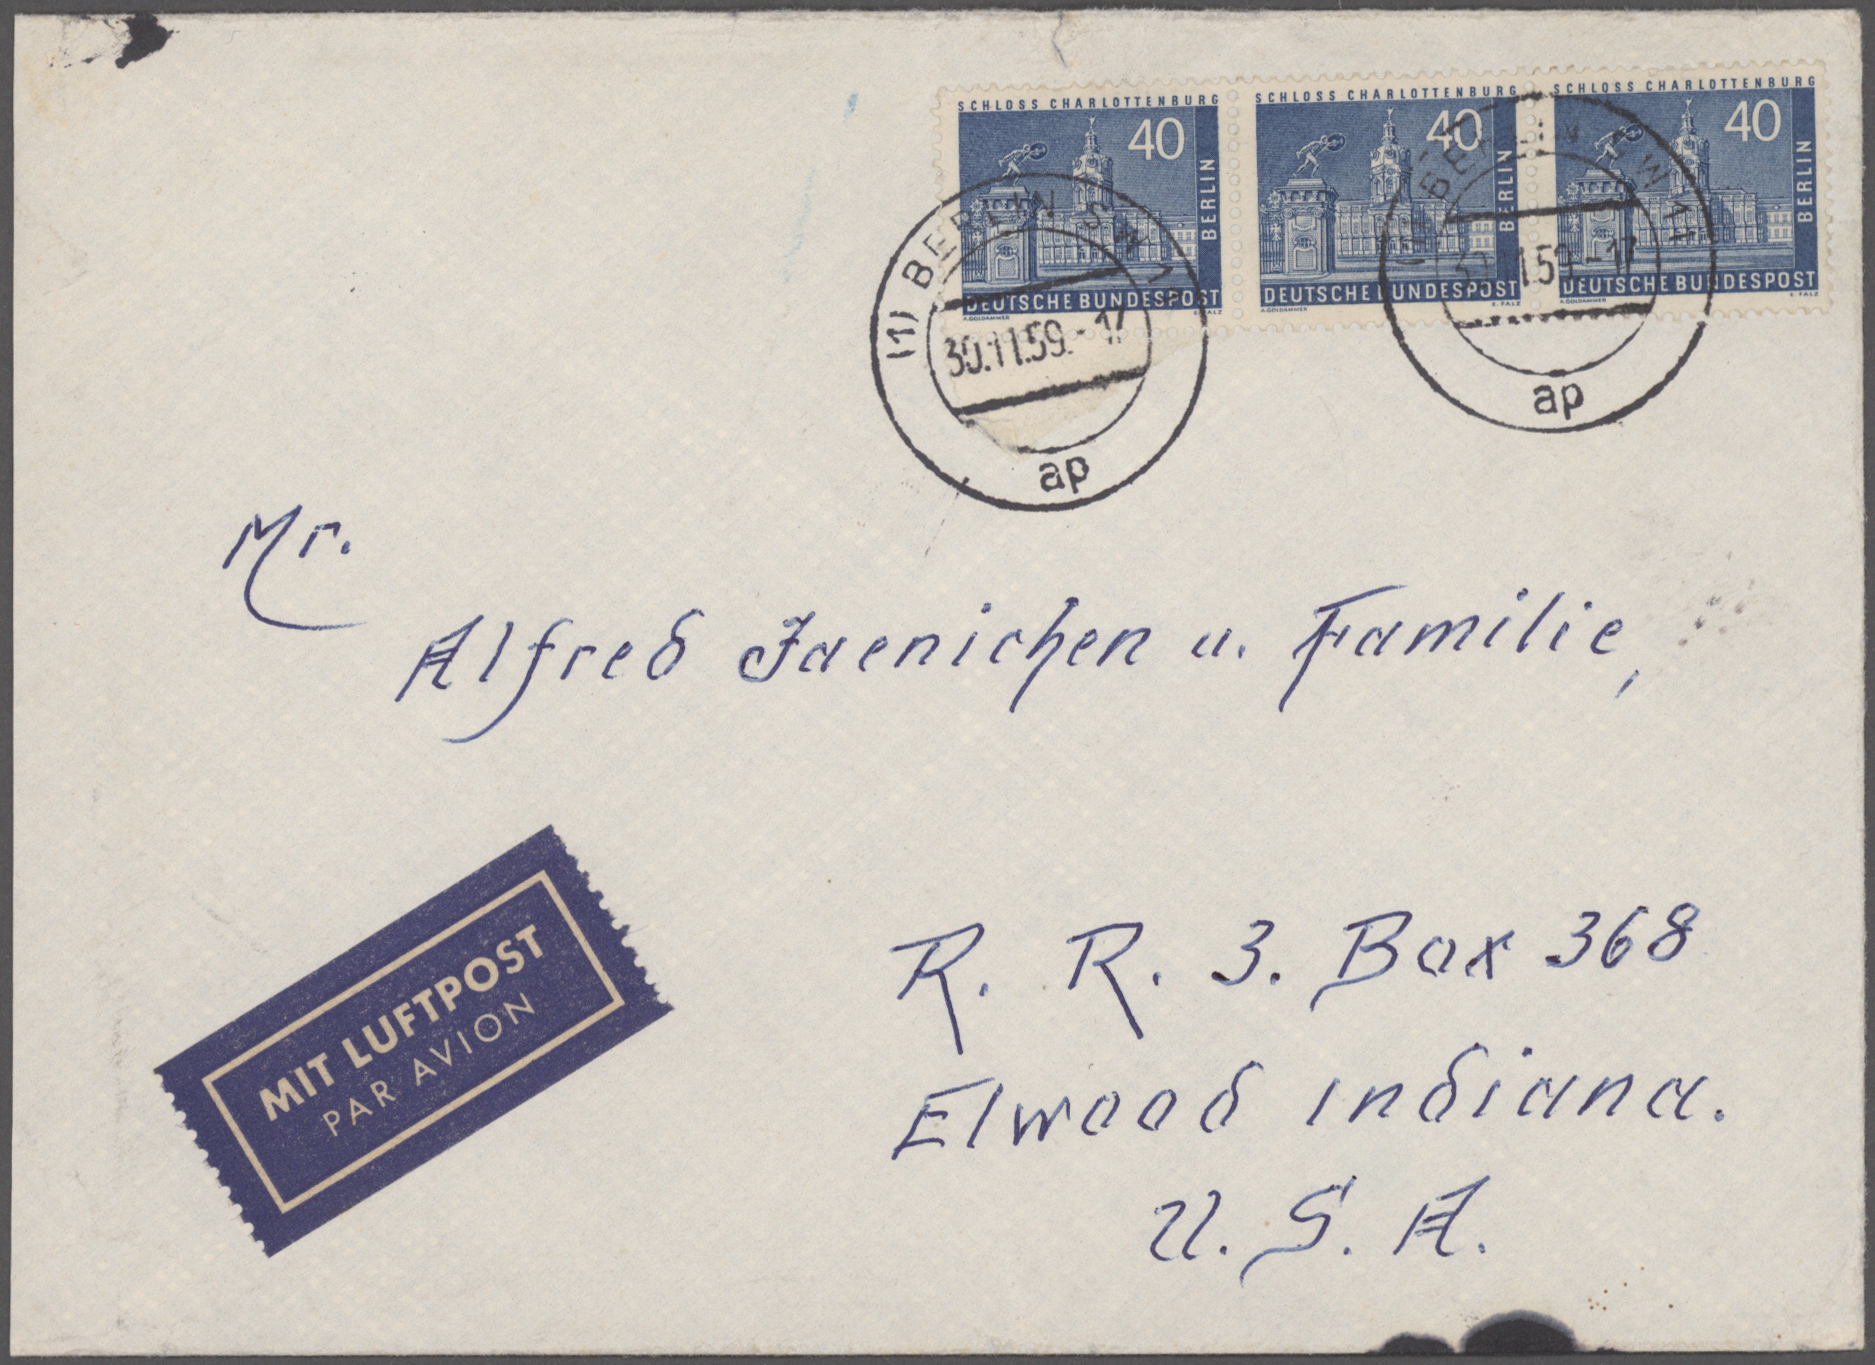 SCHLOSS CHARLOTTENBURG
40
BERLIN
DEUTSCHE BUNDESPOST
A.GOLDAMMER
E. FALZ
SCHLOSS CHARLOTTENBURG
40
BERLIN
DEUTSCHE BUNDESPOST
A.GOLDAMMER
E. FALZ
SCHLOSS CHARLOTTENBURG
40
BERLIN
DEUTSCHE BUNDESPOST
A.GOLDAMMER
E. FALZ
(1) BERLIN SW 11
30.11.59.-17
ap
BERLIN SW 11
30.11.59.-17
ap
Mr.
Alfred Jaenichen u. Familie,
MIT LUFTPOST
PAR AVION
R. R. 3. Box 368
Elwood Indiana.
U. S. A.